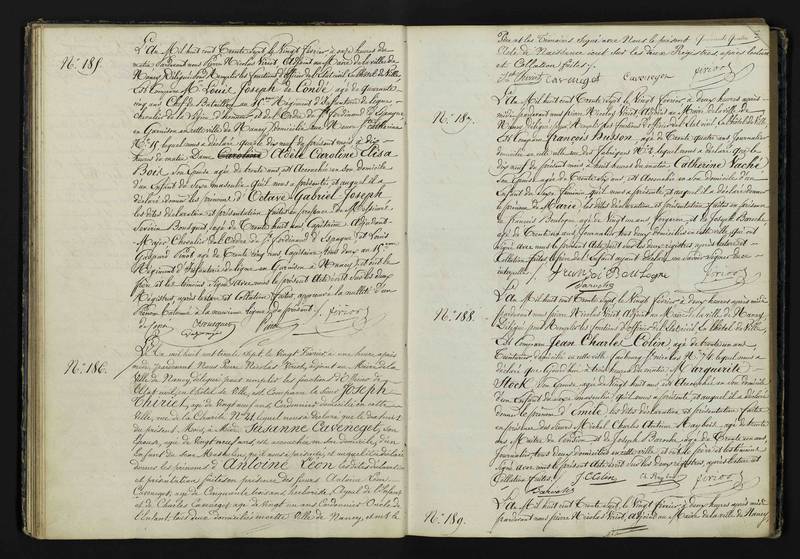 N.° 185.
L'An Mil huit cent Trente Sept, le Vingt Février à onze heures du
matin pardevant nous Pierre Nicolas Voirot Adjoint au Maire de la ville de
Nancy délégué pour Remplir les fonctions d'Officier de l'Etat civil, à l'hôtel de Ville,
Est Comparu M. Louis Joseph de Condé, agé de quarante
cinq ans Chef de Bataillon au Régiment d'Infanterie de ligne
chevalier de la Légion d'honneur et de l'Ordre de St. Ferdinand d'Espagne,
en Garnison en cette ville de Nancy, domicilié
lequel nous a déclaré que le neuf du présent mois à dix
heures du matin Dame Caroline Adèle Caroline Elisa
son Epouse agée de trente ans est Accouchée en son domicile
d'un Enfant du Sexe masculin qu'il nous a présenté, et auquel il a
déclaré donner les prénoms d'Octave Gabriel Joseph
les dites déclaration et présentation faites en présence de
Bousquet, agé de Trente huit ans Capitaine Adjudant
Major Chevalier de l'Ordre de St. Ferdinand d'Espagne et Louis
Gaspard agé de Trente cinq ans Capitaine tous deux au
Régiment d'Infanterie de ligne en Garnison à Nancy, et ont le
père et les témoins signé avec nous le présent Acte écrit sur les deux
Registres, après lecture et Collation faites, approuvé la nullité d'un
Prénom à la neuvième ligne du présent.
Bousquet
N.° 186.
L'An mil huit cent trente Sept, le Vingt Février à une heure après
midi, pardevant Nous Pierre Nicolas Voirot, Adjoint au Maire de la
Ville de Nancy, délégué pour remplir les fonctions d'Officier de
l'Etat civil, en l'hôtel de Ville, Est Comparu le Sieur Joseph
Thiriet, agé de Vingt neuf ans, Cordonnier domicilié en cette
Ville, rue de la Charité N.° lequel nous a déclaré que le dix huit
du présent Mois, à Midi, Susanne Caveneget, son
Epouse, agée de Vingt neuf ans, est accouchée en son domicile, d'un
Enfant du Sexe Masculin, qu'il nous a présenté, et auquel il a déclaré
donner les prénoms d'Antoine Léon les dites déclaration
et présentation faites en présence des Sieurs Antoine Léon
Caveneget, agé de Cinquante trois ans Ayeul de l'Enfant
et de Charles Cavenegez, agé de Vingt un ans Cordonnier Oncle de
l'Enfant, tous deux domiciliés en cette Ville de Nancy, et ont le
Père et les Témoins Signé avec Nous le présent
Acte de Naissance écrit sur les deux Registres, après lecture
et Collation faites.
Cavenegel Cavenegez
N.° 187.
L'An Mil huit cent Trente Sept, le Vingt Février, à deux heures après-
midi, pardevant nous Pierre Nicolas Voirot Adjoint au Maire de la ville de
Nancy, délégué pour Remplir les fonctions d'officier de l'Etat civil, à l'hôtel de Ville,
Est Comparu François Busson, agé de Trente quatre ans Journalier
domicilié en cette ville lequel nous a déclaré que le
dix neuf du présent mois à huit heures du matin Catherine Vaché
son Epouse agée de Trente six ans, est Accouchée en son domicile d'un
Enfant du Sexe féminin qu'il nous a présenté, et auquel il a déclaré donner
le prénom de Marie les dites déclaration et présentation faites en présence
de François Boulogne agé de Vingt un ans forgeron, et de Joseph Baroche
agé de Trente un ans Journalier tous deux domiciliés en cette ville qui ont
signé avec nous le présent Acte écrit sur les deux registres après lecture et
Collation faites, le père de l'Enfant ayant déclaré ne savoir signer de ce
interpellé.
françoi Boulogne
Baroche
N.° 188.
L'An Mil huit cent Trente Sept, le Vingt février à deux heures après midi
pardevant nous Pierre Nicolas Voirot, Adjoint au Maire de la ville de Nancy,
Délégué pour Remplir les fonctions d'officier de l'Etat civil, à l'hôtel de Ville,
Est Comparu Jean Charles Colin, agé de trente un ans
Teinturier domicilié en cette ville faubourg St. nicolas N.° 74 lequel nous a
déclaré que à trois heures du matin Marguerite
Stock, son Epouse agée de Vingt huit ans est Accouchée en son domicile
d'un Enfant du Sexe masculin qu'il nous a présenté, et auquel il a déclaré
donner le prénom d'Emile les dites déclaration et présentation faites
en présence des Sieurs Michel Charles Antoine agé de trente
ans Maître de et de Joseph Baroche agé de Trente un ans,
Journalier tous deux domiciliés en cette ville, et ont le père et les témoins
signé avec nous le présent Acte écrit sur les deux registres, après lecture et
Collation faites.
J. C. Colin
Baroche
N.° 189.
L'An Mil huit cent Trente Sept, le Vingt février à deux heures après midi
pardevant nous Pierre Nicolas Voirot, Adjoint au Maire de la ville de Nancy